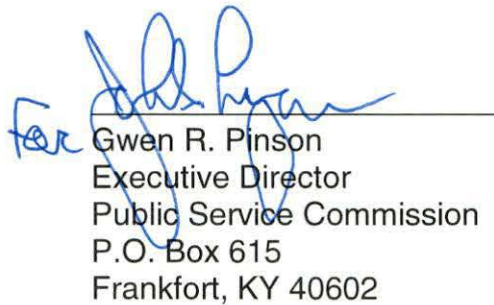 For
Gwen R. Pinson
Executive Director
Public Service Commission
P.O. Box 615
Frankfort, KY 40602